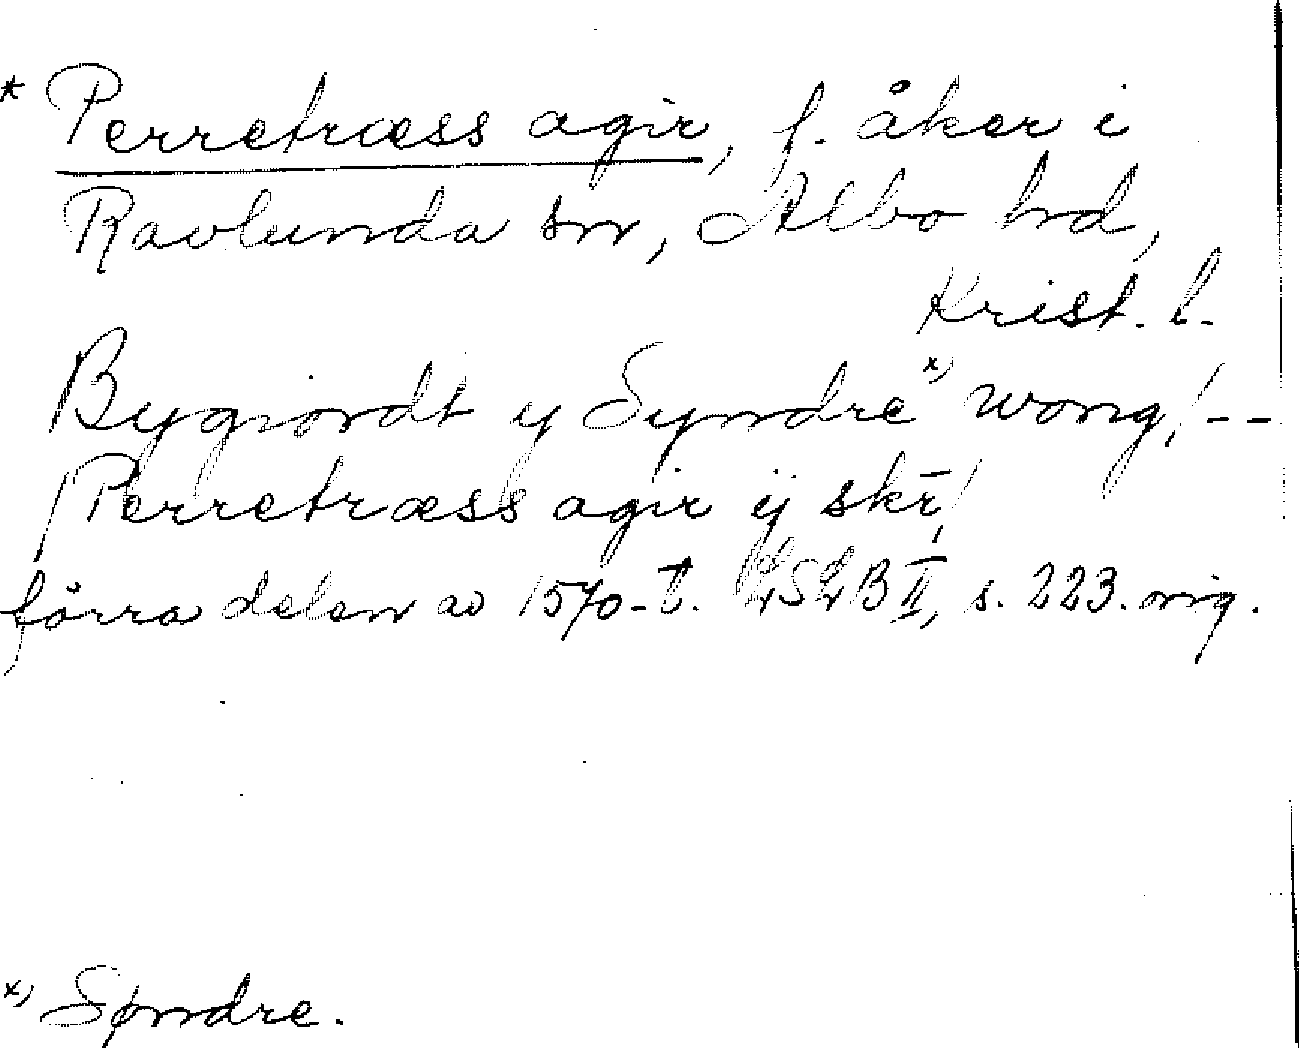 * Perretræss agir, f. åker i
Ravlunda sn, Albo hd,
Krist. l.
Bygiordt y Syndre x) wong/--
/Perretræss agir ij skr̄,/
förra delen av 1570-t. LSLB II, s. 223. orig.
x) Søndre.